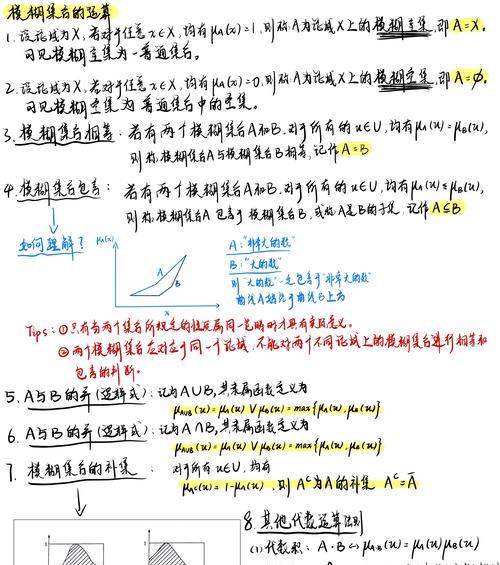 模糊集合的运算
1. 设论域为X,若对于任意x∈X,均有μA(x)=1,则称A为论域X上的模糊全集,即A=X。
可见模糊全集为一普通集合。
2. 设论域为X,若对于任意x∈X,均有μA(x)=0,则称A为论域X上的模糊空集,即A=∅。
可见模糊空集为普通集合中的空集。
3. 模糊集合相等:若有两个模糊集合A和B,对于所有的x∈U,均有μA(x)=μB(x),
则称模糊集合A与模糊集合B相等,记作A=B
4. 模糊集合包含:若有两个模糊集合A和B,对于所有的x∈U,均有μA(x)≤μB(x),
则称模糊集合A包含于模糊集合B,或称A是B的子集,记作A⊆B
如何理解?
μA(x)
A
B
x
A:"非常大的数"
B:"大的数"
则"大的数"一定包含于"非常大的数"
曲线A始终于曲线B上方
Tips:①只有当两个集合所规定的性质属同一范畴时才具有实际意义。
②两个模糊集合应对应于同一个论域,不能对两个不同论域上的模糊集合进行相等和
包含的判断。
5. A与B的并(逻辑式):记为A∪B,其隶属函数定义为
μA∪B(x)=μA(x)∨μB(x)=max{μA(x),μB(x)}
6. A与B的并(逻辑式):记为A∩B,其隶属函数定义为
μA∪B(x)=μA(x)∨μB(x)=max{μA(x),μB(x)}
7. 模糊集合的补集:对于所有x∈U,均有
μAc(x)=1-μA(x),则A^C为A的补集 A^C=Ā
8. 其他代数运算法则
(1) 代数积:A·B↔μA·B(x)=μA(x)μB(x)